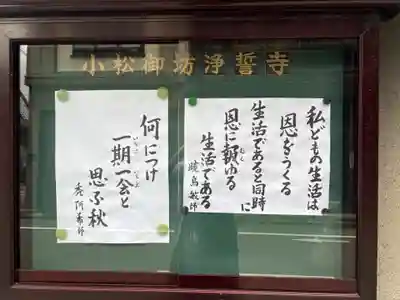 小松御坊浄誓寺
私どもの生活は
恩をうくる
生活であると同時に
恩に報ゆる
むく
生活である
暁烏敏師
何につけ
一期一会と
いちご いちえ
思ふ秋